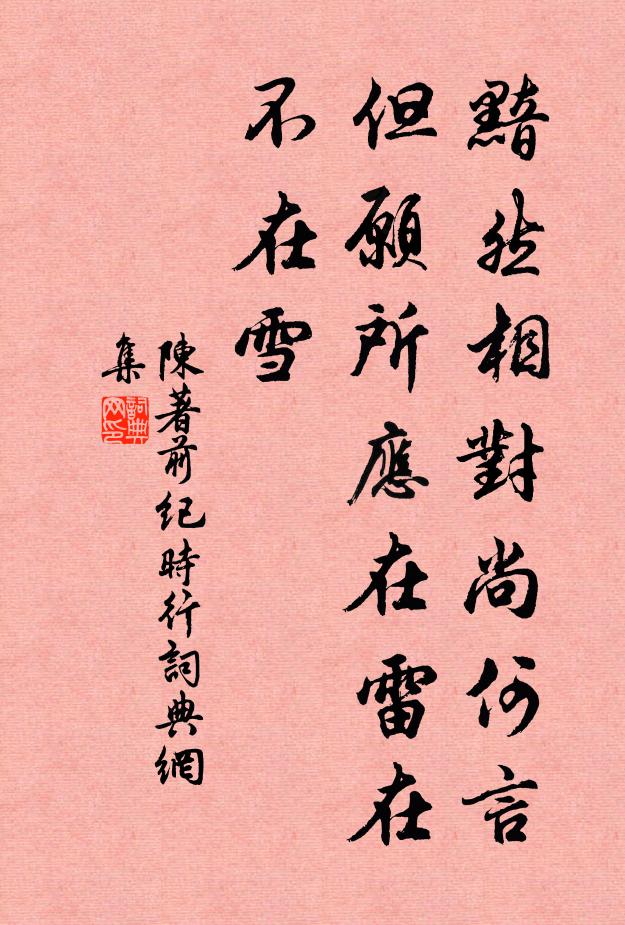 黯然相對尚何言
但願所應在雷在
不在雪
陳著前紀時行詞典網
集
詞典網印